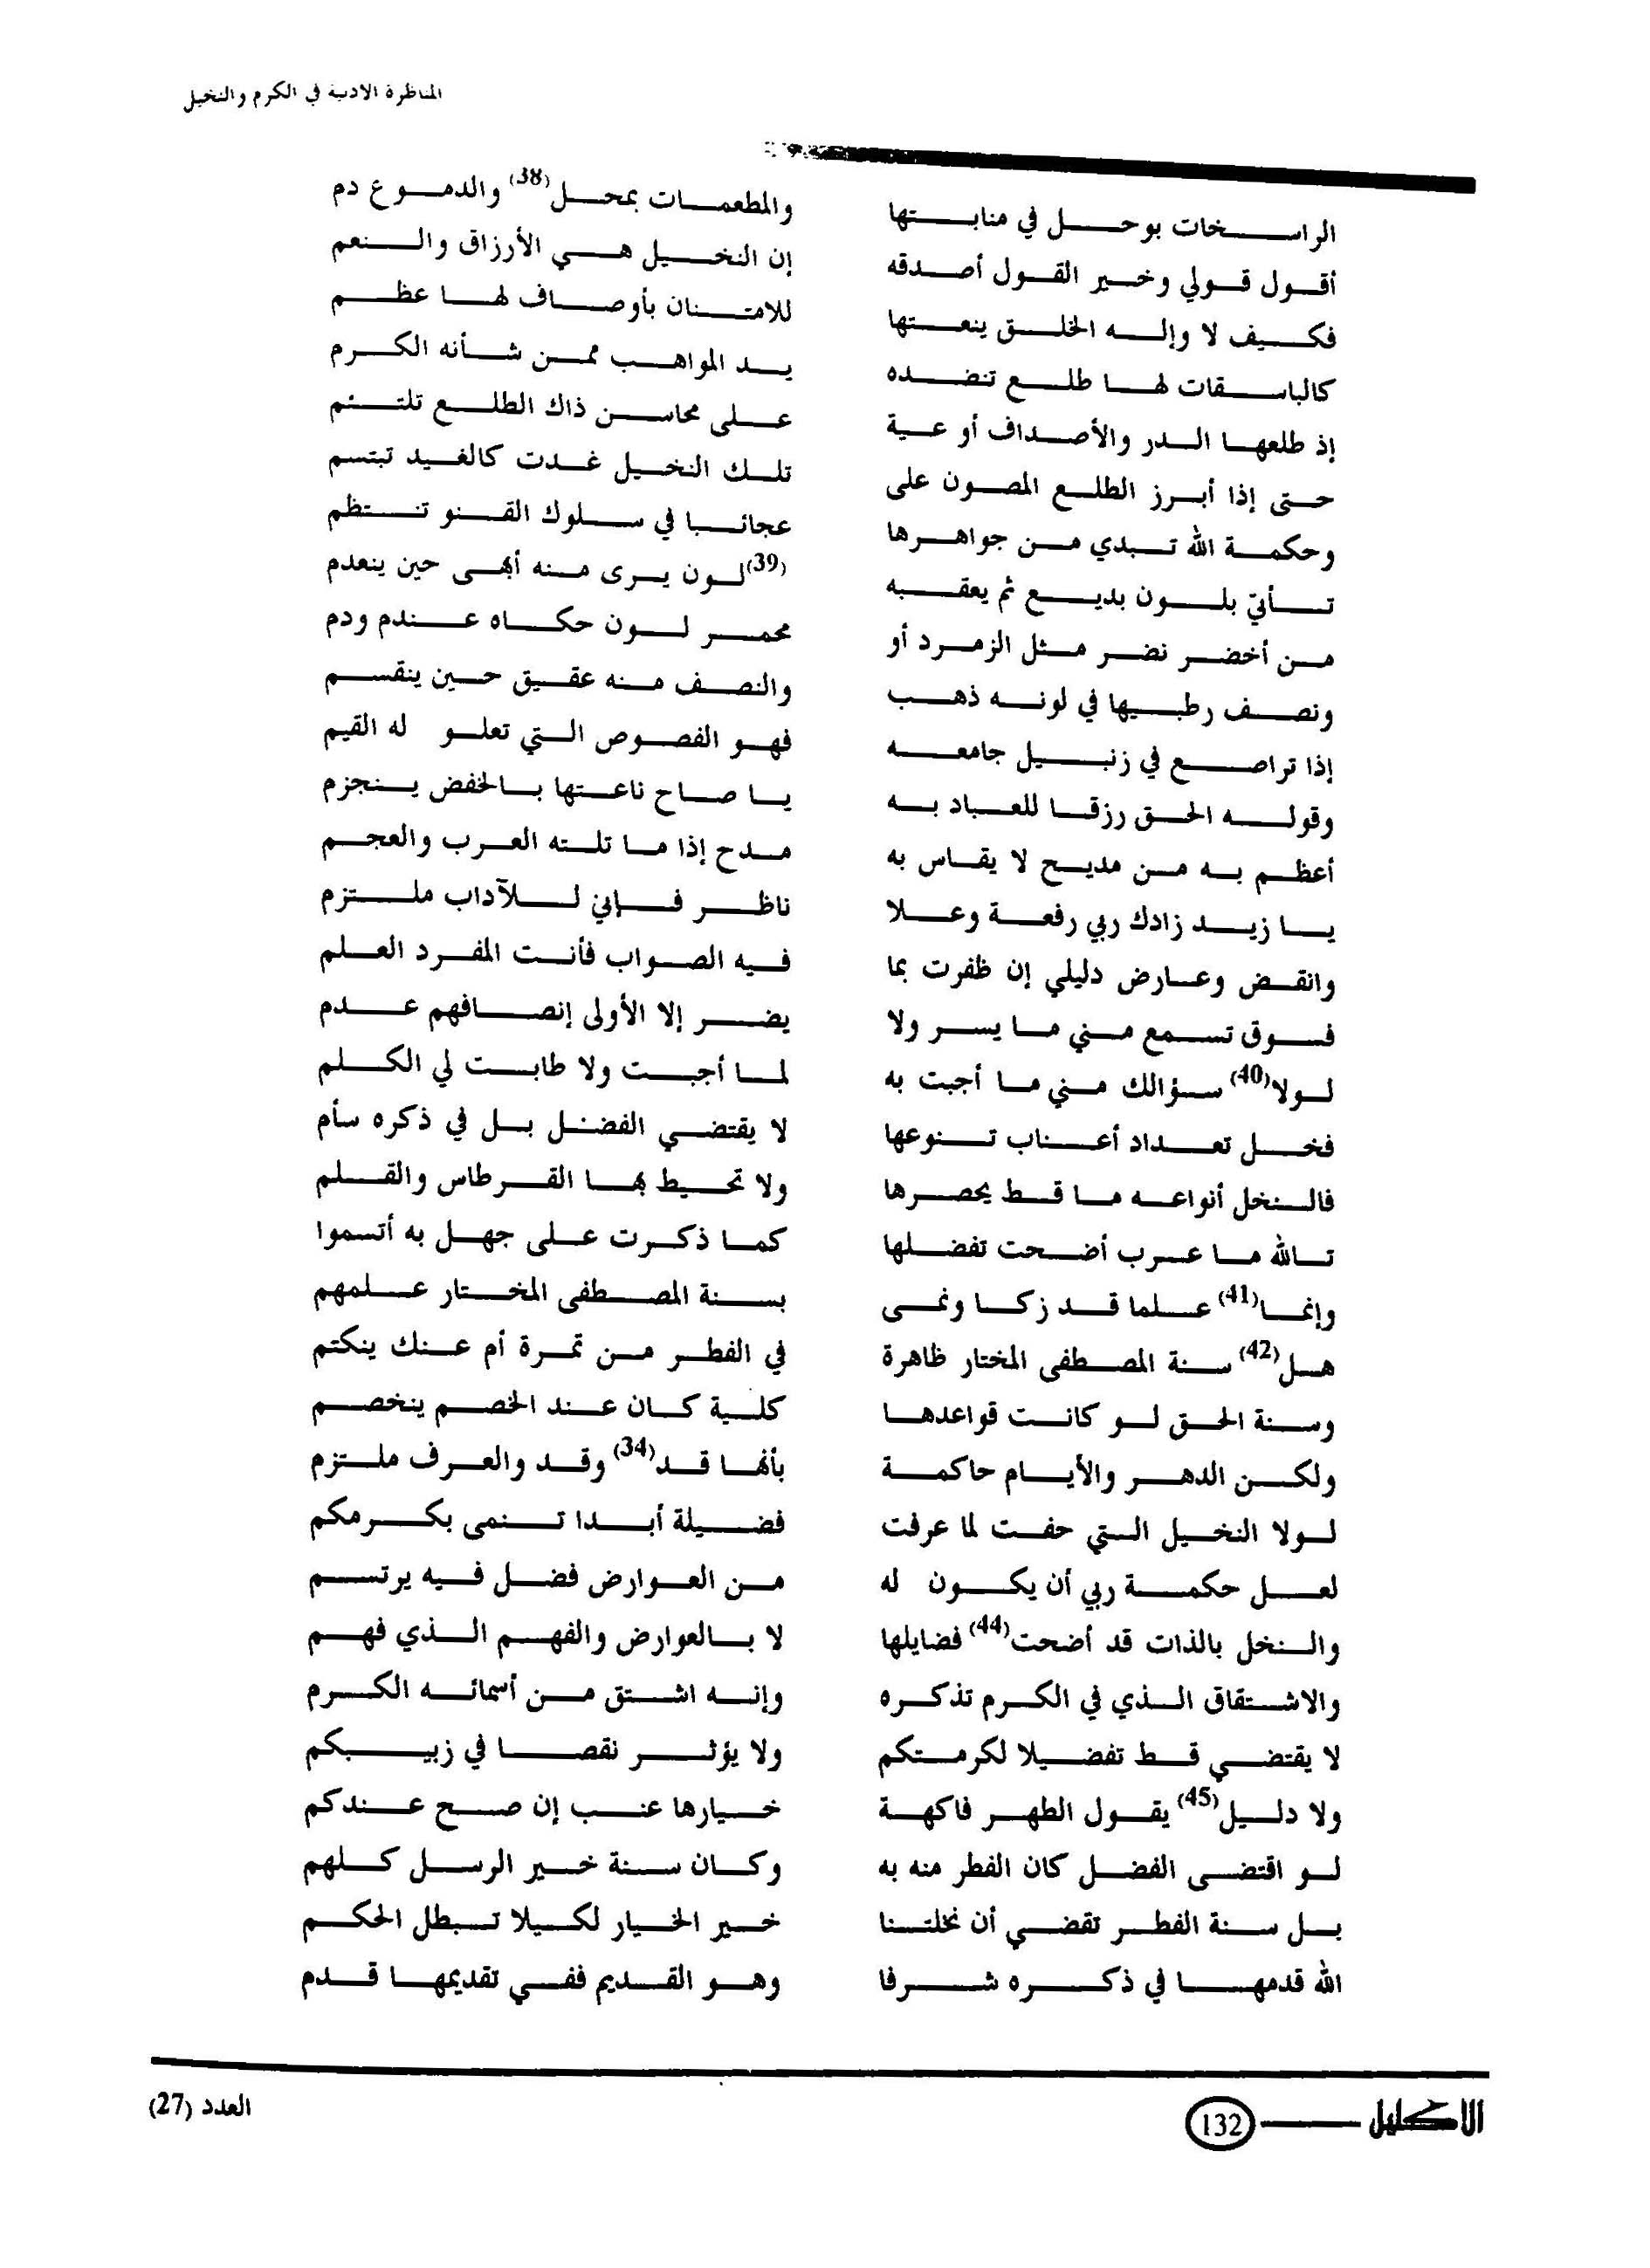 المناظرة الادبية في الكرم والنخيل
الراسخات بوحل في منابتها والمطعمات بمحل(38) والدموع دم
أقول قولي وخير القول أصدقه إن النخيل هي الأرزاق والنعم
فكيف لا وإله الخلق ينعتها للامتنان بأوصاف لها عظم
كالباسقات لها طلع تنضده يد المواهب ممن شأنه الكرم
إذ طلعها الدر والأصداف أو عية على محاسن ذاك الطلع تلتئم
حتى إذا أبرز الطلع المصون على تلك النخيل غدت كالغيد تبتسم
وحكمة الله تبدي من جواهرها عجائبا في سلوك القنو تنتظم
تأتي بلون بديع ثم يعقبه (39)لون يرى منه أبهى حين ينعدم
من أخضر نضر مثل الزمرد أو محمر لون حكاه عندم ودم
ونصف رطبيها في لونه ذهب والنصف منه عقيق حين ينقسم
إذا تراصع في زنبيل جامعه فهو الفصوص التي تعلو له القيم
وقوله الحق رزقا للعباد به يا صاح ناعتها بالخفض ينجزم
أعظم به من مديح لا يقاس به مدح إذا ما تلته العرب والعجم
يا زيد زادك ربي رفعة وعلا ناظر فإني للآداب ملتزم
وانقض وعارض دليلي إن ظفرت بما فيه الصواب فأنت المفرد العلم
فسوق تسمع مني ما يسر ولا يضر إلا الأولى إنصافهم عدم
لولا(40) سؤالك مني ما أجبت به لما أجبت ولا طابت لي الكلم
فخل تعداد أعناب تنوعها لا يقتضي الفضل بل في ذكره سأم
فالنخل أنواعه ما قط يحصرها ولا تحيط بها القرطاس والقلم
تالله ما عرب أضحت تفضلها كما ذكرت على جهل به أتسموا
وإنما(41) علما قد زكا ونمى بسنة المصطفى المختار علمهم
هل(42) سنة المصطفى المختار ظاهرة في الفطر من تمرة أم عنك ينكتم
وسنة الحق لو كانت قواعدها كلية كان عند الخصم ينخصم
ولكن الدهر والأيام حاكمة بأنها قد(34) وقد والعرف ملتزم
لولا النخيل التي حفت لما عرفت فضيلة أبدا تنمى بكرمكم
لعل حكمة ربي أن يكون له من العوارض فضل فيه يرتسم
والنخل بالذات قد أضحت(44) فضايلها لا بالعوارض والفهم الذي فهم
والاشتقاق الذي في الكرم تذكره وإنه اشتق من أسمائه الكرم
لا يقتضي قط تفضيلا لكرمتكم ولا يؤثر نقصا في زبيبكم
ولا دليل(45) يقول الطهر فاكهة خيارها عنب إن صح عندكم
لو اقتضى الفضل كان الفطر منه به وكان سنة خير الرسل كلهم
بل سنة الفطر تقضي أن نخلتنا خير الخيار لكيلا تبطل الحكم
الله قدمها في ذكره شرفا وهو القديم ففي تقديمها قدم
الاكليل 132 العدد (27)